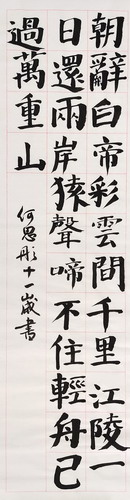 朝辭白帝彩雲間千里江陵一
日還兩岸猿聲啼不住輕舟已
過萬重山
何思彤十一歲書